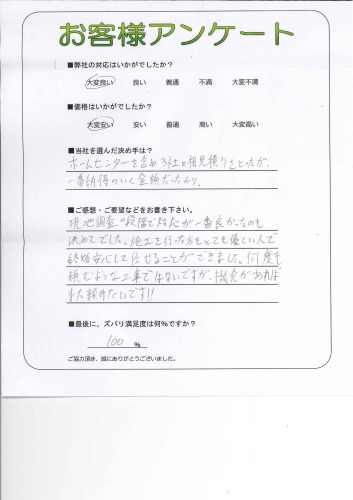 お客様アンケート
■弊社の対応はいかがでしたか?
大変良い 良い 普通 不満 大変不満
■価格はいかがでしたか?
大変安い 安い 普通 高い 大変高い
■当社を選んだ決め手は?
ホームセンターを含め3社と相見積りをとったが、
一番納得のいく金額だったから。
■ご感想・ご要望などをお書き下さい。
現地調査の段階で対応が一番良かったのも
決めてでした。施工を行った方もとても優しい人で
終始安心して任せることができました。何度も
頼むような工事ではないですが、機会があれば
また頼みたいです!!
■最後に、ズバリ満足度は何%ですか?
100 %
ご協力頂き、誠にありがとうございました。